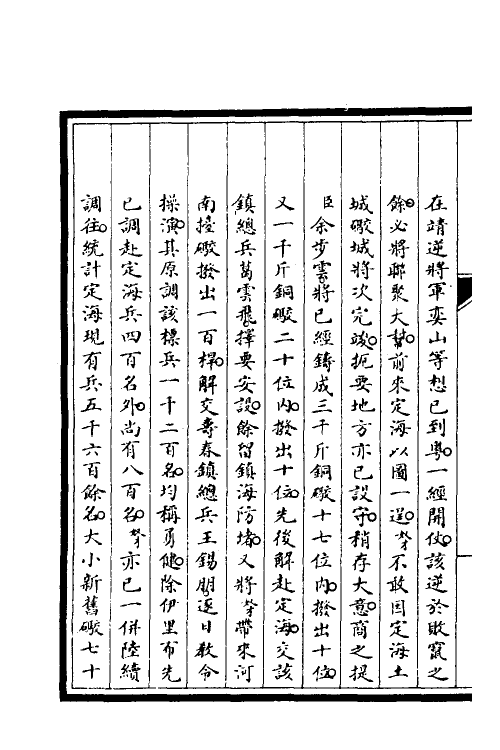 在靖逆將軍奕山等想已到粵一經開仗該逆於敗竄之
餘必將聯聚大幫前來定海以圖一逞䒳不敢因定海土
城礮城將次完竣扼要地方亦已設守稍存大意商之提
臣余步雲將已經鑄成三千斤銅礮十七位內撥出十位
又一千斤銅礮二十位內撥出十位先後解赴定海交該
鎮總兵葛雲飛擇要安設餘留鎮海防堵又將䒳帶來河
南擡礮撥出一百桿解交壽春鎮總兵王錫朋逐日教令
操演其原調該標兵一千二百名均稱勇健除伊里布先
已調赴定海兵四百名外尚有八百名䒳亦已一併陸續
調往統計定海現有兵五千六百餘名大小新舊礮七十